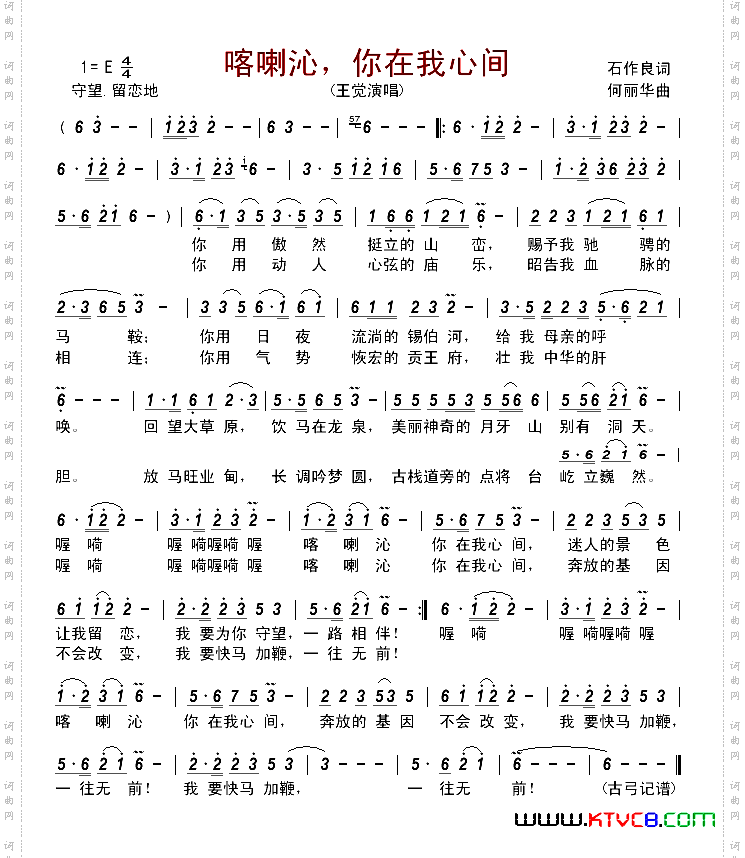 喀喇沁，你在我心间
1=E 4/4
石作良词
守望.留恋地
(王觉演唱)
何丽华曲
( 6 3 - - | 1 2 3 2 - | 6 3 - - | 57 6 - - - |: 6 · 1 2 2 - | 3 · 1 2 3 2 - |
6 · 1 2 2 - | 3 · 1 2 3 i 6 - | 3 · 5 1 2 1 6 | 5 · 6 7 5 3 - | 1 · 2 3 6 2 3 2 |
5 · 6 2 1 6 - ) | 6 · 1 3 5 3 · 5 3 5 | 1 6 6 1 2 1 6 - | 2 2 3 1 2 1 6 1 |
你 用 傲 然 挺立的 山 峦， 赐予我 驰 骋的
你 用 动 人 心弦的 庙 乐， 昭告我 血 脉的
2 · 3 6 5 3 - | 3 3 5 6 · 1 6 1 | 6 1 1 1 2 3 2 - | 3 · 5 2 2 3 5 · 6 2 1 |
马 鞍； 你用 日 夜 流淌的 锡伯 河， 给 我 母亲的 呼
相 连； 你用 气 势 恢宏的 贡王 府， 壮 我 中华的 肝
6 - - - | 1 · 1 6 1 2 · 3 | 5 · 5 6 5 3 - | 5 5 5 5 3 5 5 3 | 5 · 5 6 2 1 6 - |
唤。 回 望大草 原， 饮 马在龙 泉， 美丽神奇的 月牙 山 别有 洞 天。
5 · 6 2 1 6 - |
胆。 放 马旺业 甸， 长 调吟梦 圆， 古栈道旁的 点将 台 屹 立巍 然。
6 · 1 2 2 - | 3 · 1 2 3 2 - | 1 · 2 3 1 6 - | 5 · 6 7 5 3 - | 2 2 3 5 3 5 |
喔 嗬 喔 嗬喔嗬 喔 喀 喇 沁 你 在我心 间， 迷人的 景 色
喔 嗬 喔 嗬喔嗬 喔 喀 喇 沁 你 在我心 间， 奔放的 基 因
6 1 1 2 2 - | 2 · 2 2 3 5 3 | 5 · 6 2 1 6 - :| 6 · 1 2 2 - | 3 · 1 2 3 2 - |
让我 留 恋， 我 要为你 守望， 一 路 相 伴！ 喔 嗬 喔 嗬喔嗬 喔
不会 改 变， 我 要快马 加鞭， 一 往 无 前！
1 · 2 3 1 6 - | 5 · 6 7 5 3 - | 2 2 3 5 3 5 | 6 1 1 2 2 - | 2 · 2 2 3 5 3 |
喀 喇 沁 你 在我心 间， 奔放的 基 因 不会 改 变， 我 要快马 加鞭，
5 · 6 2 1 6 - | 2 · 2 2 3 5 3 | 3 - - - | 5 · 6 2 1 6 - | 6 - - - ‖
一 往无 前！ 我 要快马 加鞭， 一 往无 前！ (古弓记谱)
www.KTVC8.com